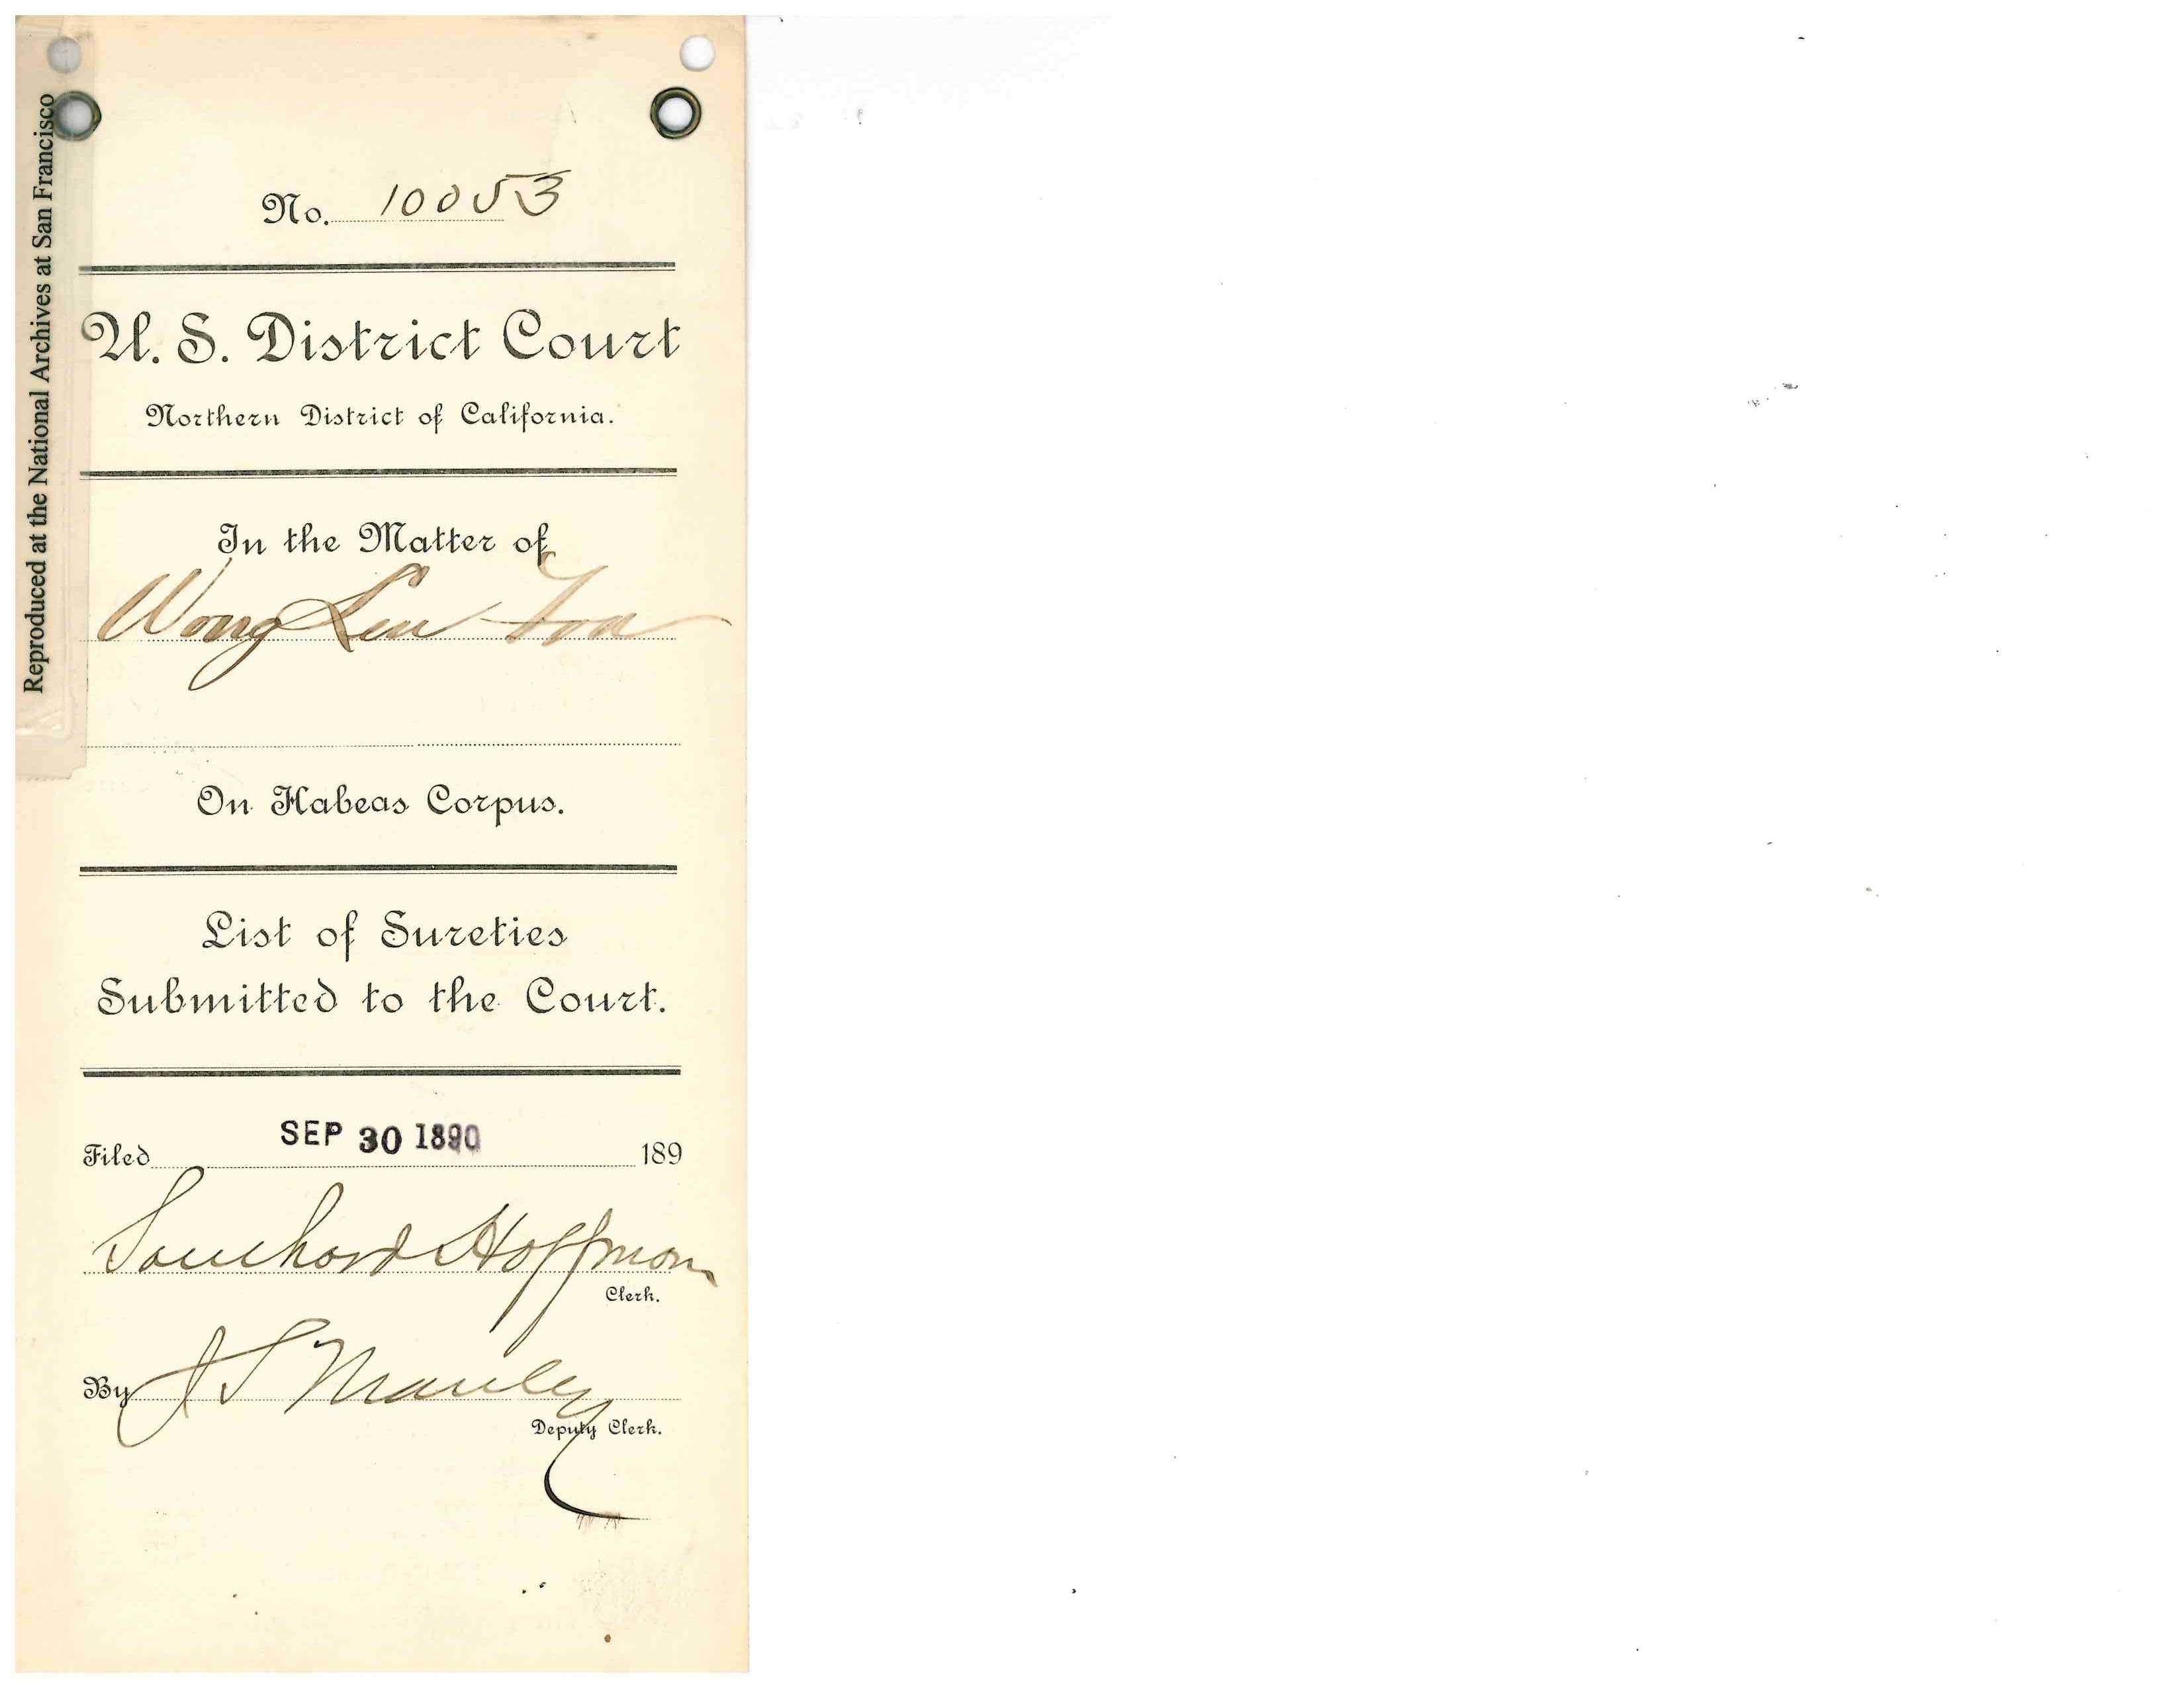 Reproduced at the National Archives at San Francisco
No. 10053
U. S. District Court
Northern District of California.
In the Matter of
Wong
On Habeas Corpus.
List of Sureties
Submitted to the Court.
Filed SEP 30 1890 189
Southard Hoffman
Clerk.
By J S Manley
Deputy Clerk.